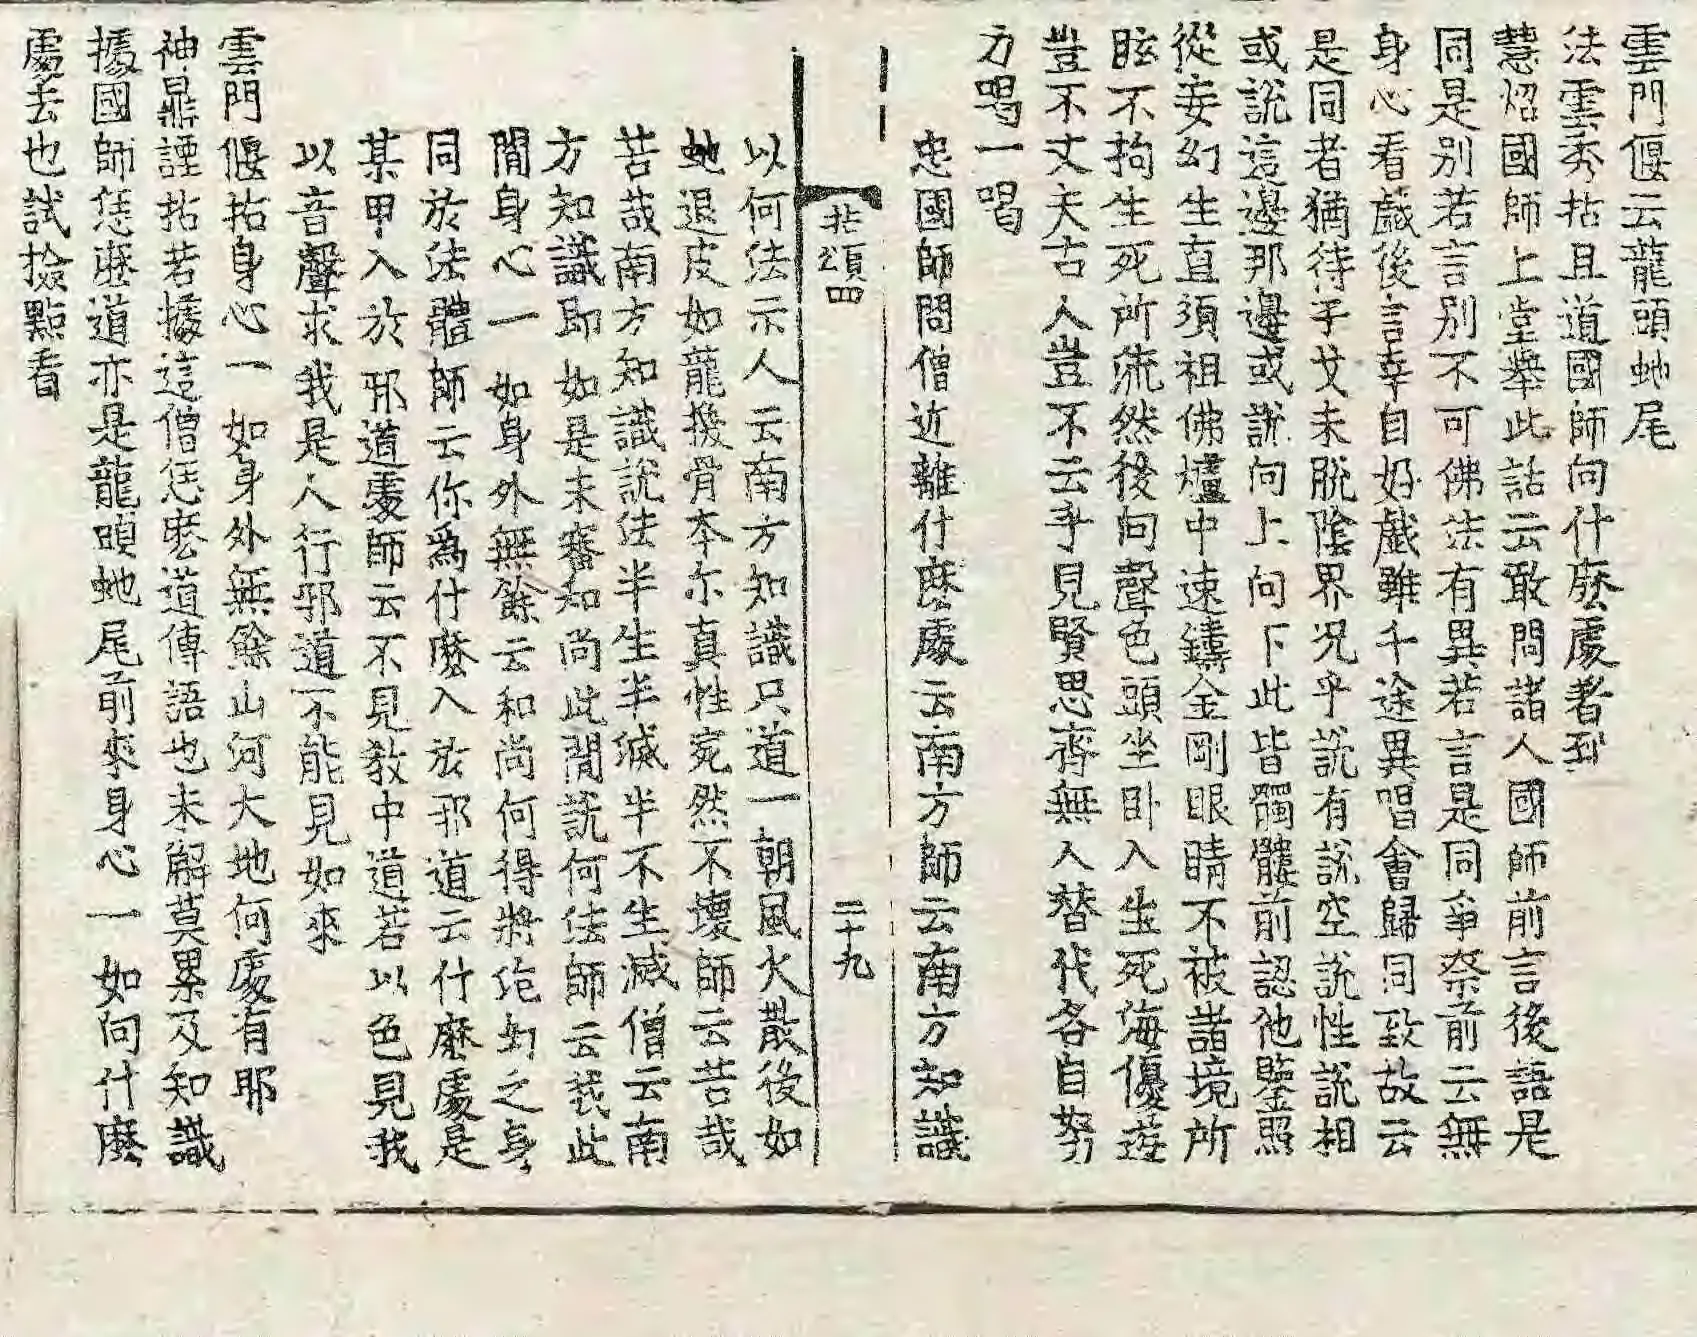 雲門偃云龍頭虵尾
法雲秀拈且道國師向什麽處者到
慧炤國師上堂舉此話云敢問諸人國師前言後語是
同是別若言別不可佛法有異若言是同爭奈前云無
身心看戱後言幸自好戱雖千途異唱會歸同致故云
是同者猶待乎文未脫陰界況乎說有說空說性說相
或說這邊那邊或說向上向下此皆髑髏前認他鑒照
從妄幻生直須祖佛爐中速鑄金剛眼睛不被諸境所
眩不拘生死所流然後向聲色頭坐卧入生死海優遊
豈不丈夫古人豈不云乎見賢思齊無人替代各自努
力喝一喝
忠國師問僧近離什麽處云南方師云南方知識
拈頌四
二十九
以何法示人云南方知識只道一朝風火散後如
虵退皮如龍換骨本尒真性宛然不壞師云苦哉
苦哉南方知識說法半生半滅半不生滅僧云南
方知識即如是未審和尚此閒說何法師云我此
閒身心一如身外無餘云和尚何得將泡幻之身
同於法體師云你爲什麽入於邪道云什麽處是
某甲入於邪道處師云不見敎中道若以色見我
以音聲求我是人行邪道不能見如來
雲門偃拈身心一如身外無餘山河大地何處有耶
神鼎諲拈若據這僧恁麽道傳語也未解莫累及知識
據國師恁麽道亦是龍頭虵尾前來身心一如向什麽
處去也試撿點看